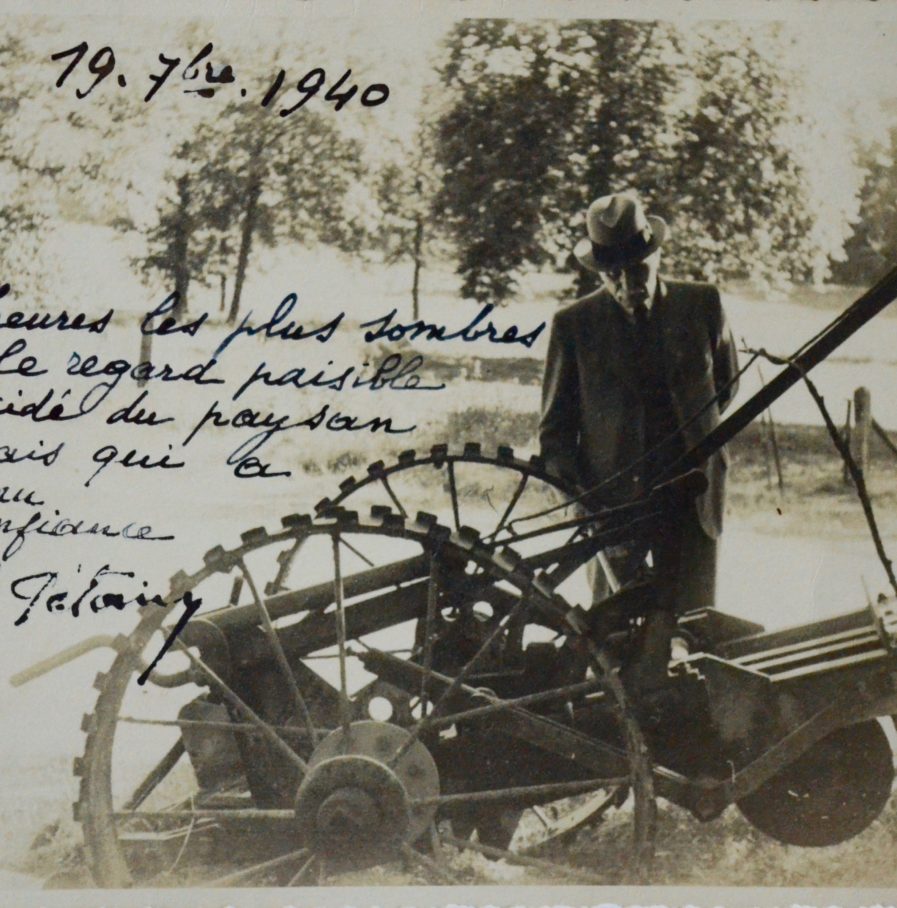 19. 7bre. 1940
heures les plus sombres
le regard paisible
cidé du paysan
ais qui a
nfiance